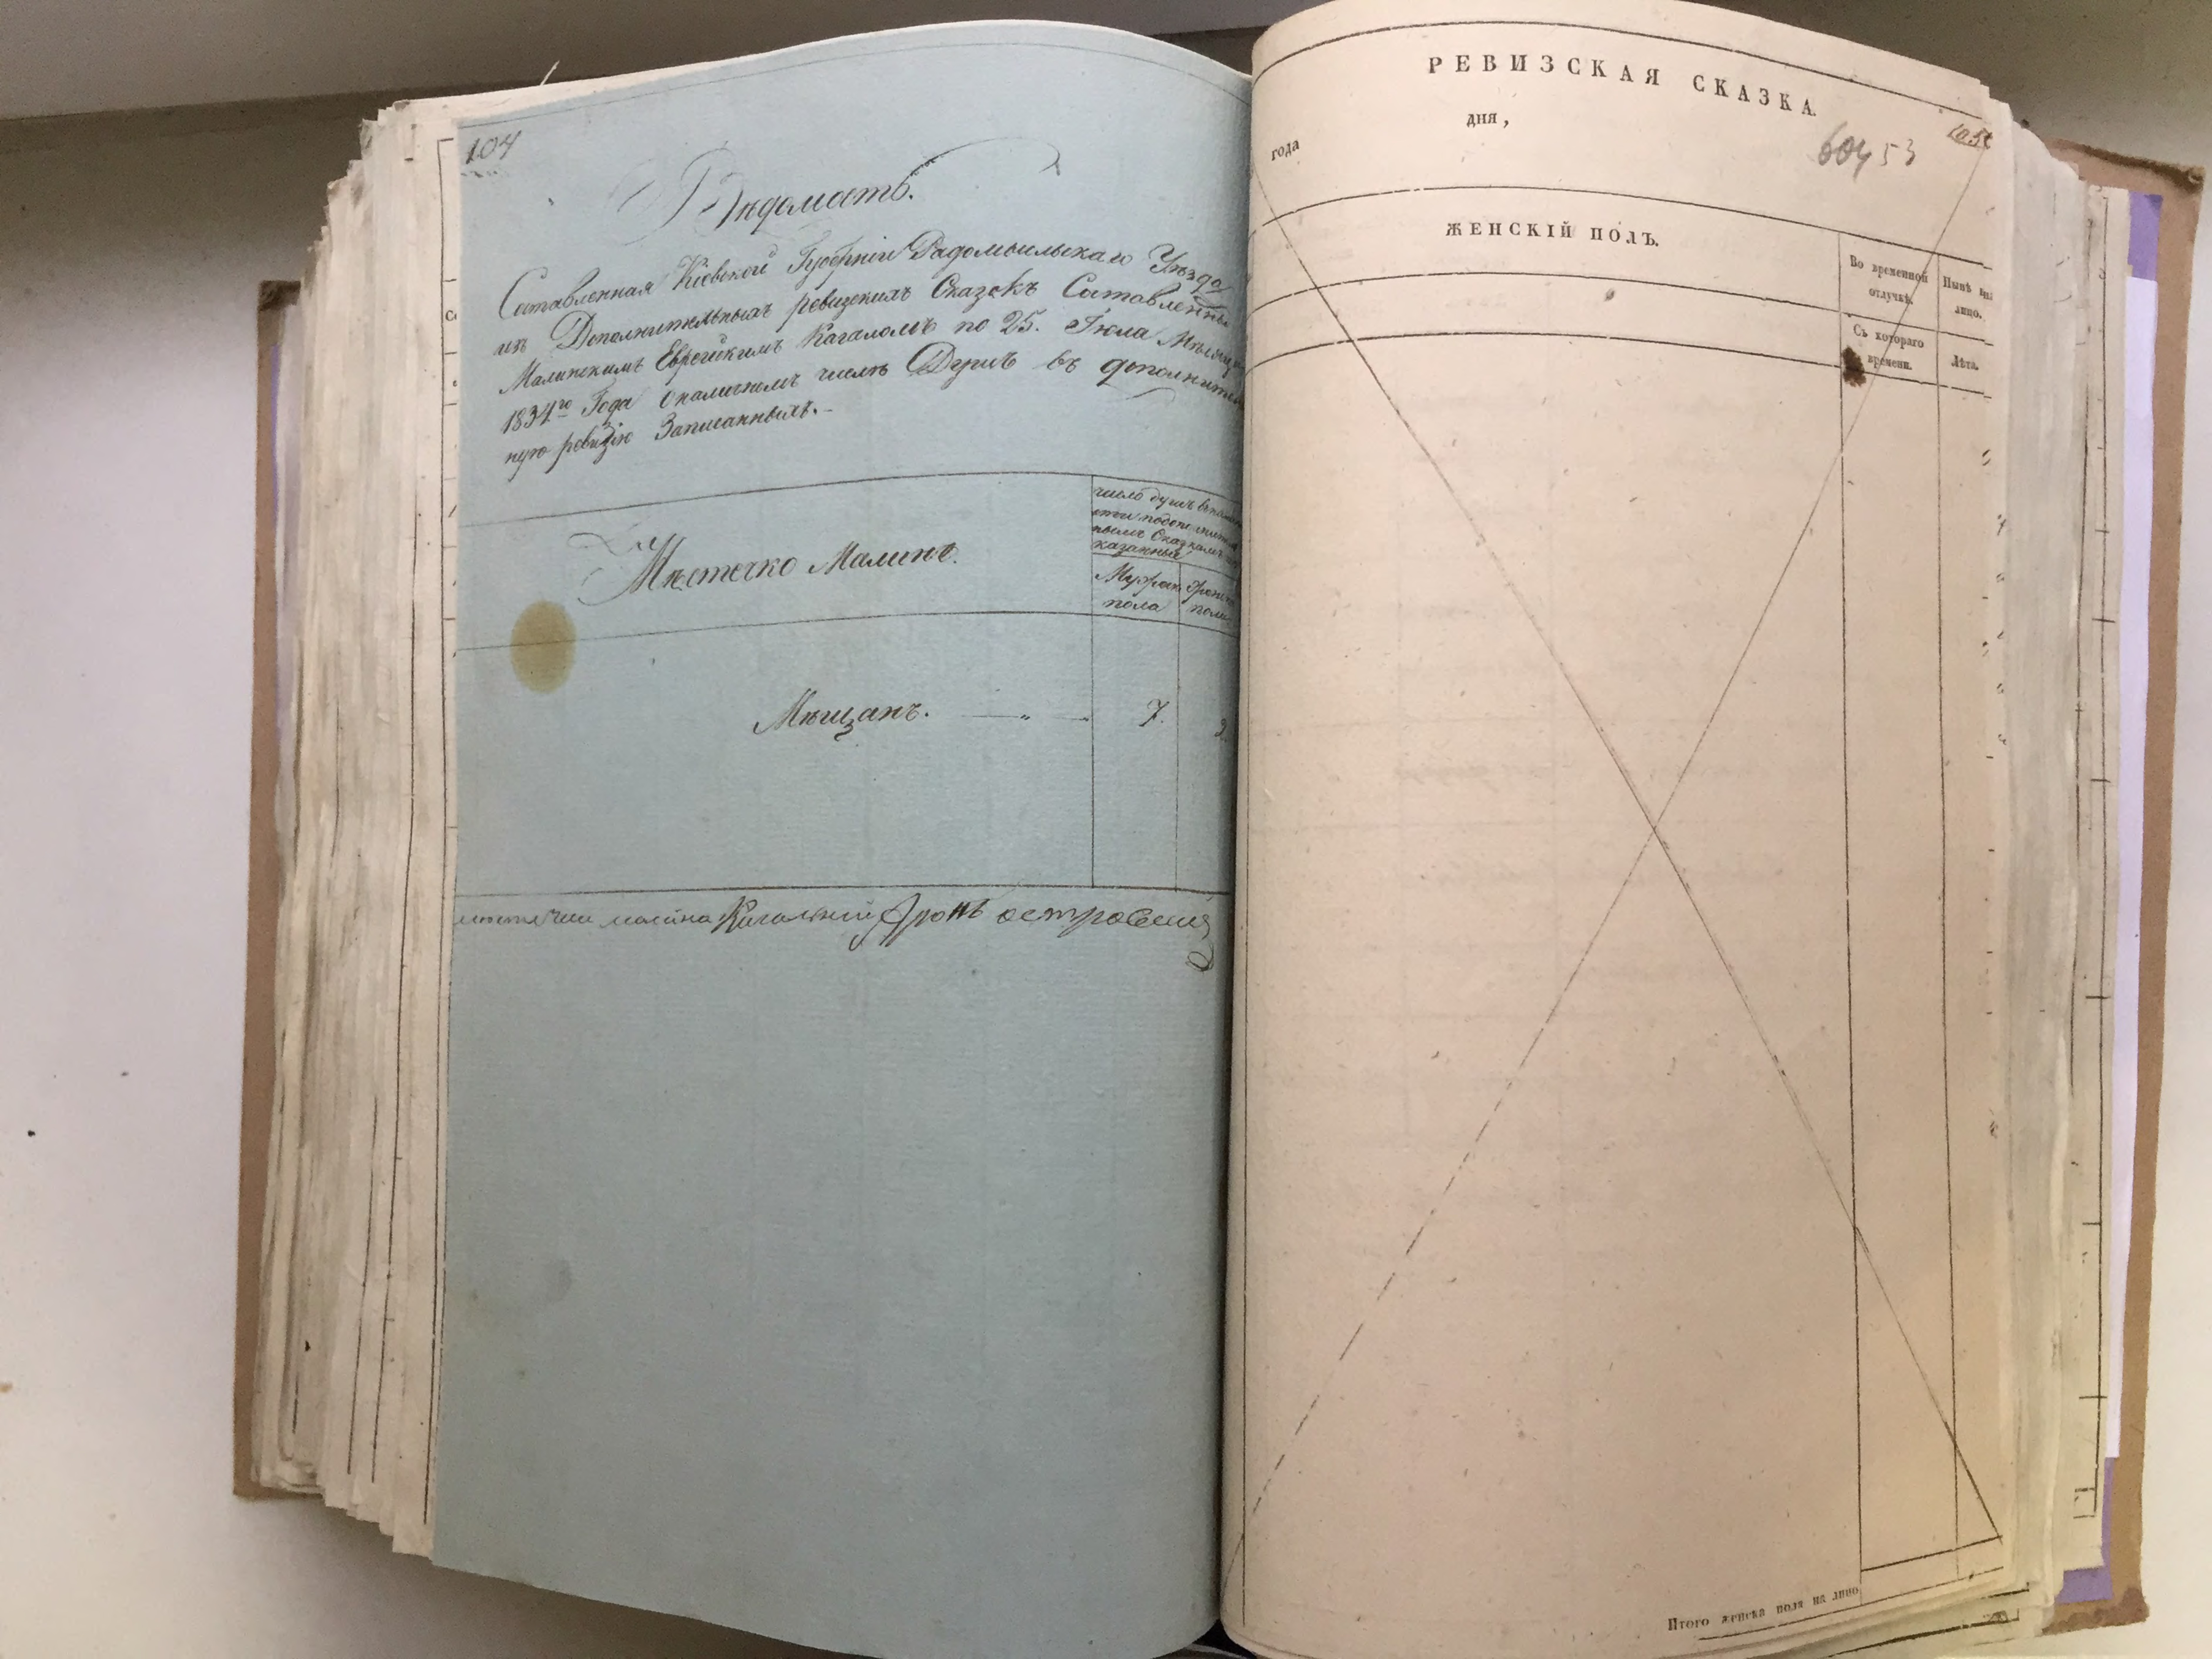 104
Вѣдомость.
Составленная Кіевской Губерніи Радомысльскаго Уѣзда
изъ Дополнительныхъ ревизскихъ Сказокъ Составленны
Малинскимъ Еврейскимъ Кагаломъ по 25. Іюля Мѣсяца
1834го Года о наличномъ числѣ Душъ въ дополнитель
ную ревизію Записанныхъ.-
Мѣстечко Малинъ.
число душъ
Сказкамъ
казанные
Мужеск
пола
Женск
пола
Мѣщанъ. — „ —
7.
Малина Кагальный Аронъ островски
РЕВИЗСКАЯ СКАЗКА.
года
дня,
60453
105
ЖЕНСКІЙ ПОЛЪ.
Во временной
отлучкѣ.
Нынѣ на
лицо.
Съ котораго
времени.
Лѣта.
Итого женска пола на лицо